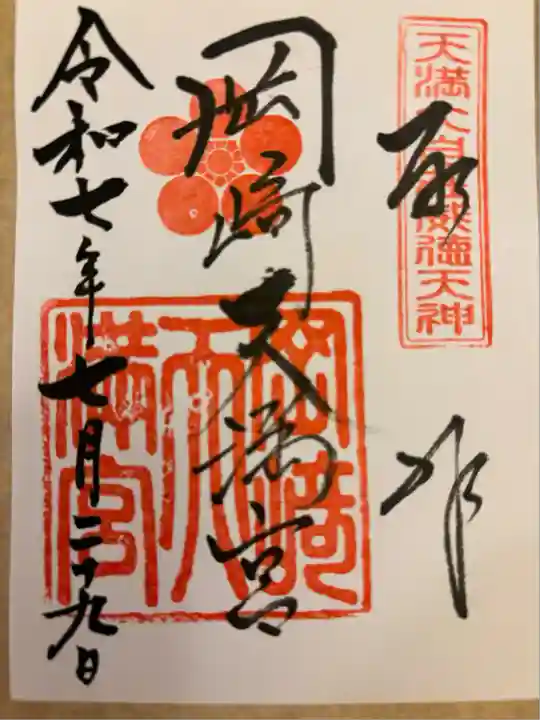 奉
拝
天満大自在威徳天神
岡崎天満宮
岡崎
天
満宮
令和七年七月二十九日